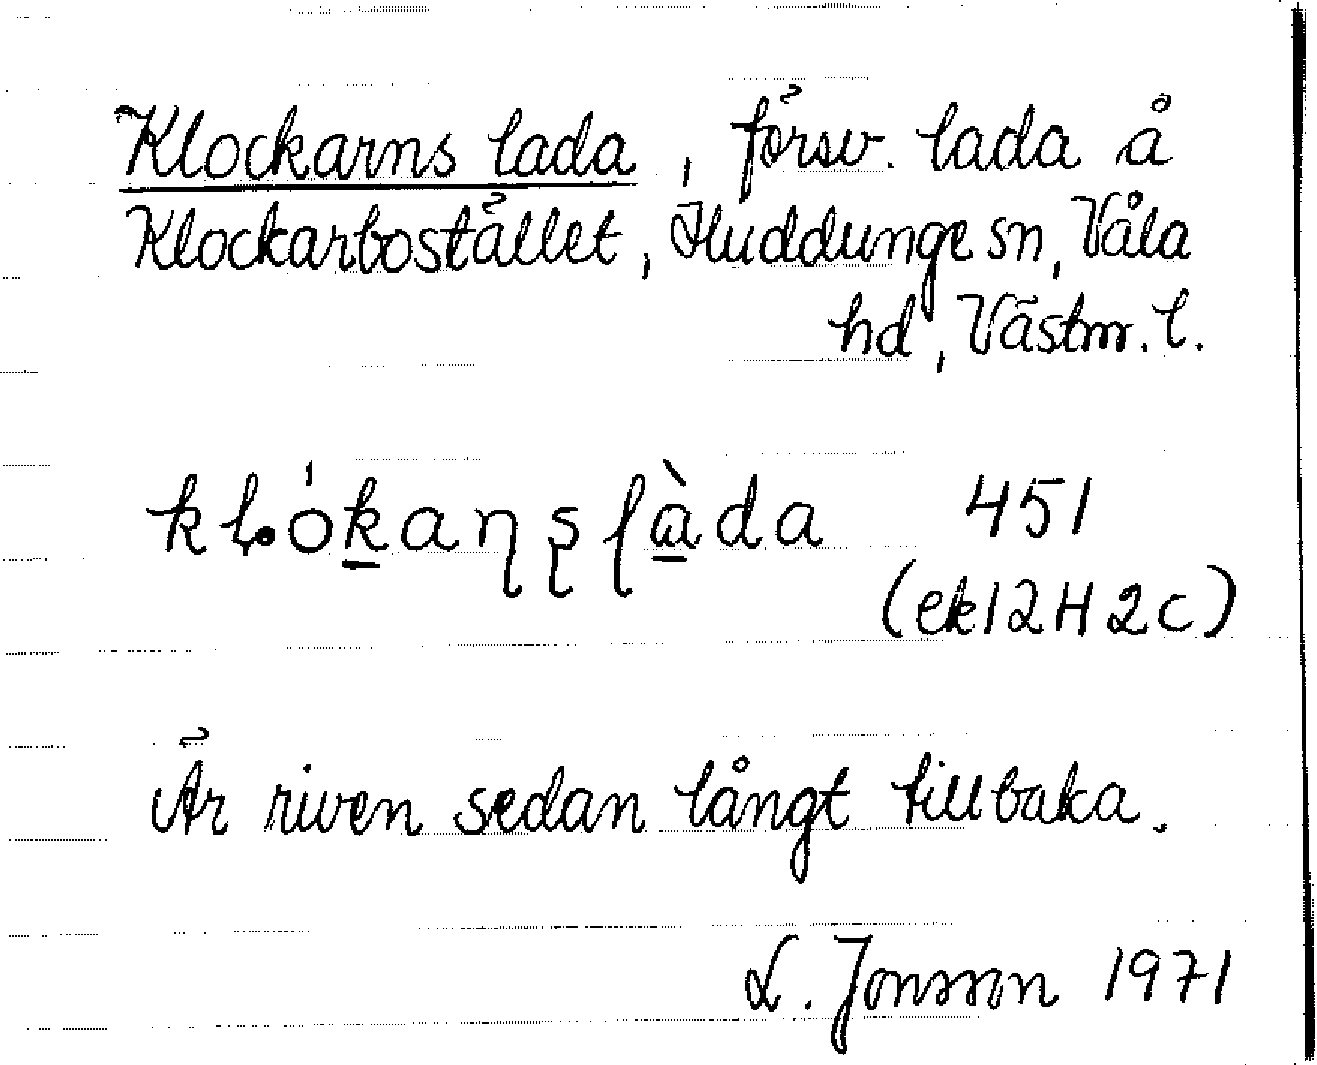 Klockarns lada, försv. lada å
Klockarbostället, Huddunge sn, Våla
hd, Västm. l.
451
(ek 12 H 2 c)
Är riven sedan långt tillbaka.
L. Jonsson 1971